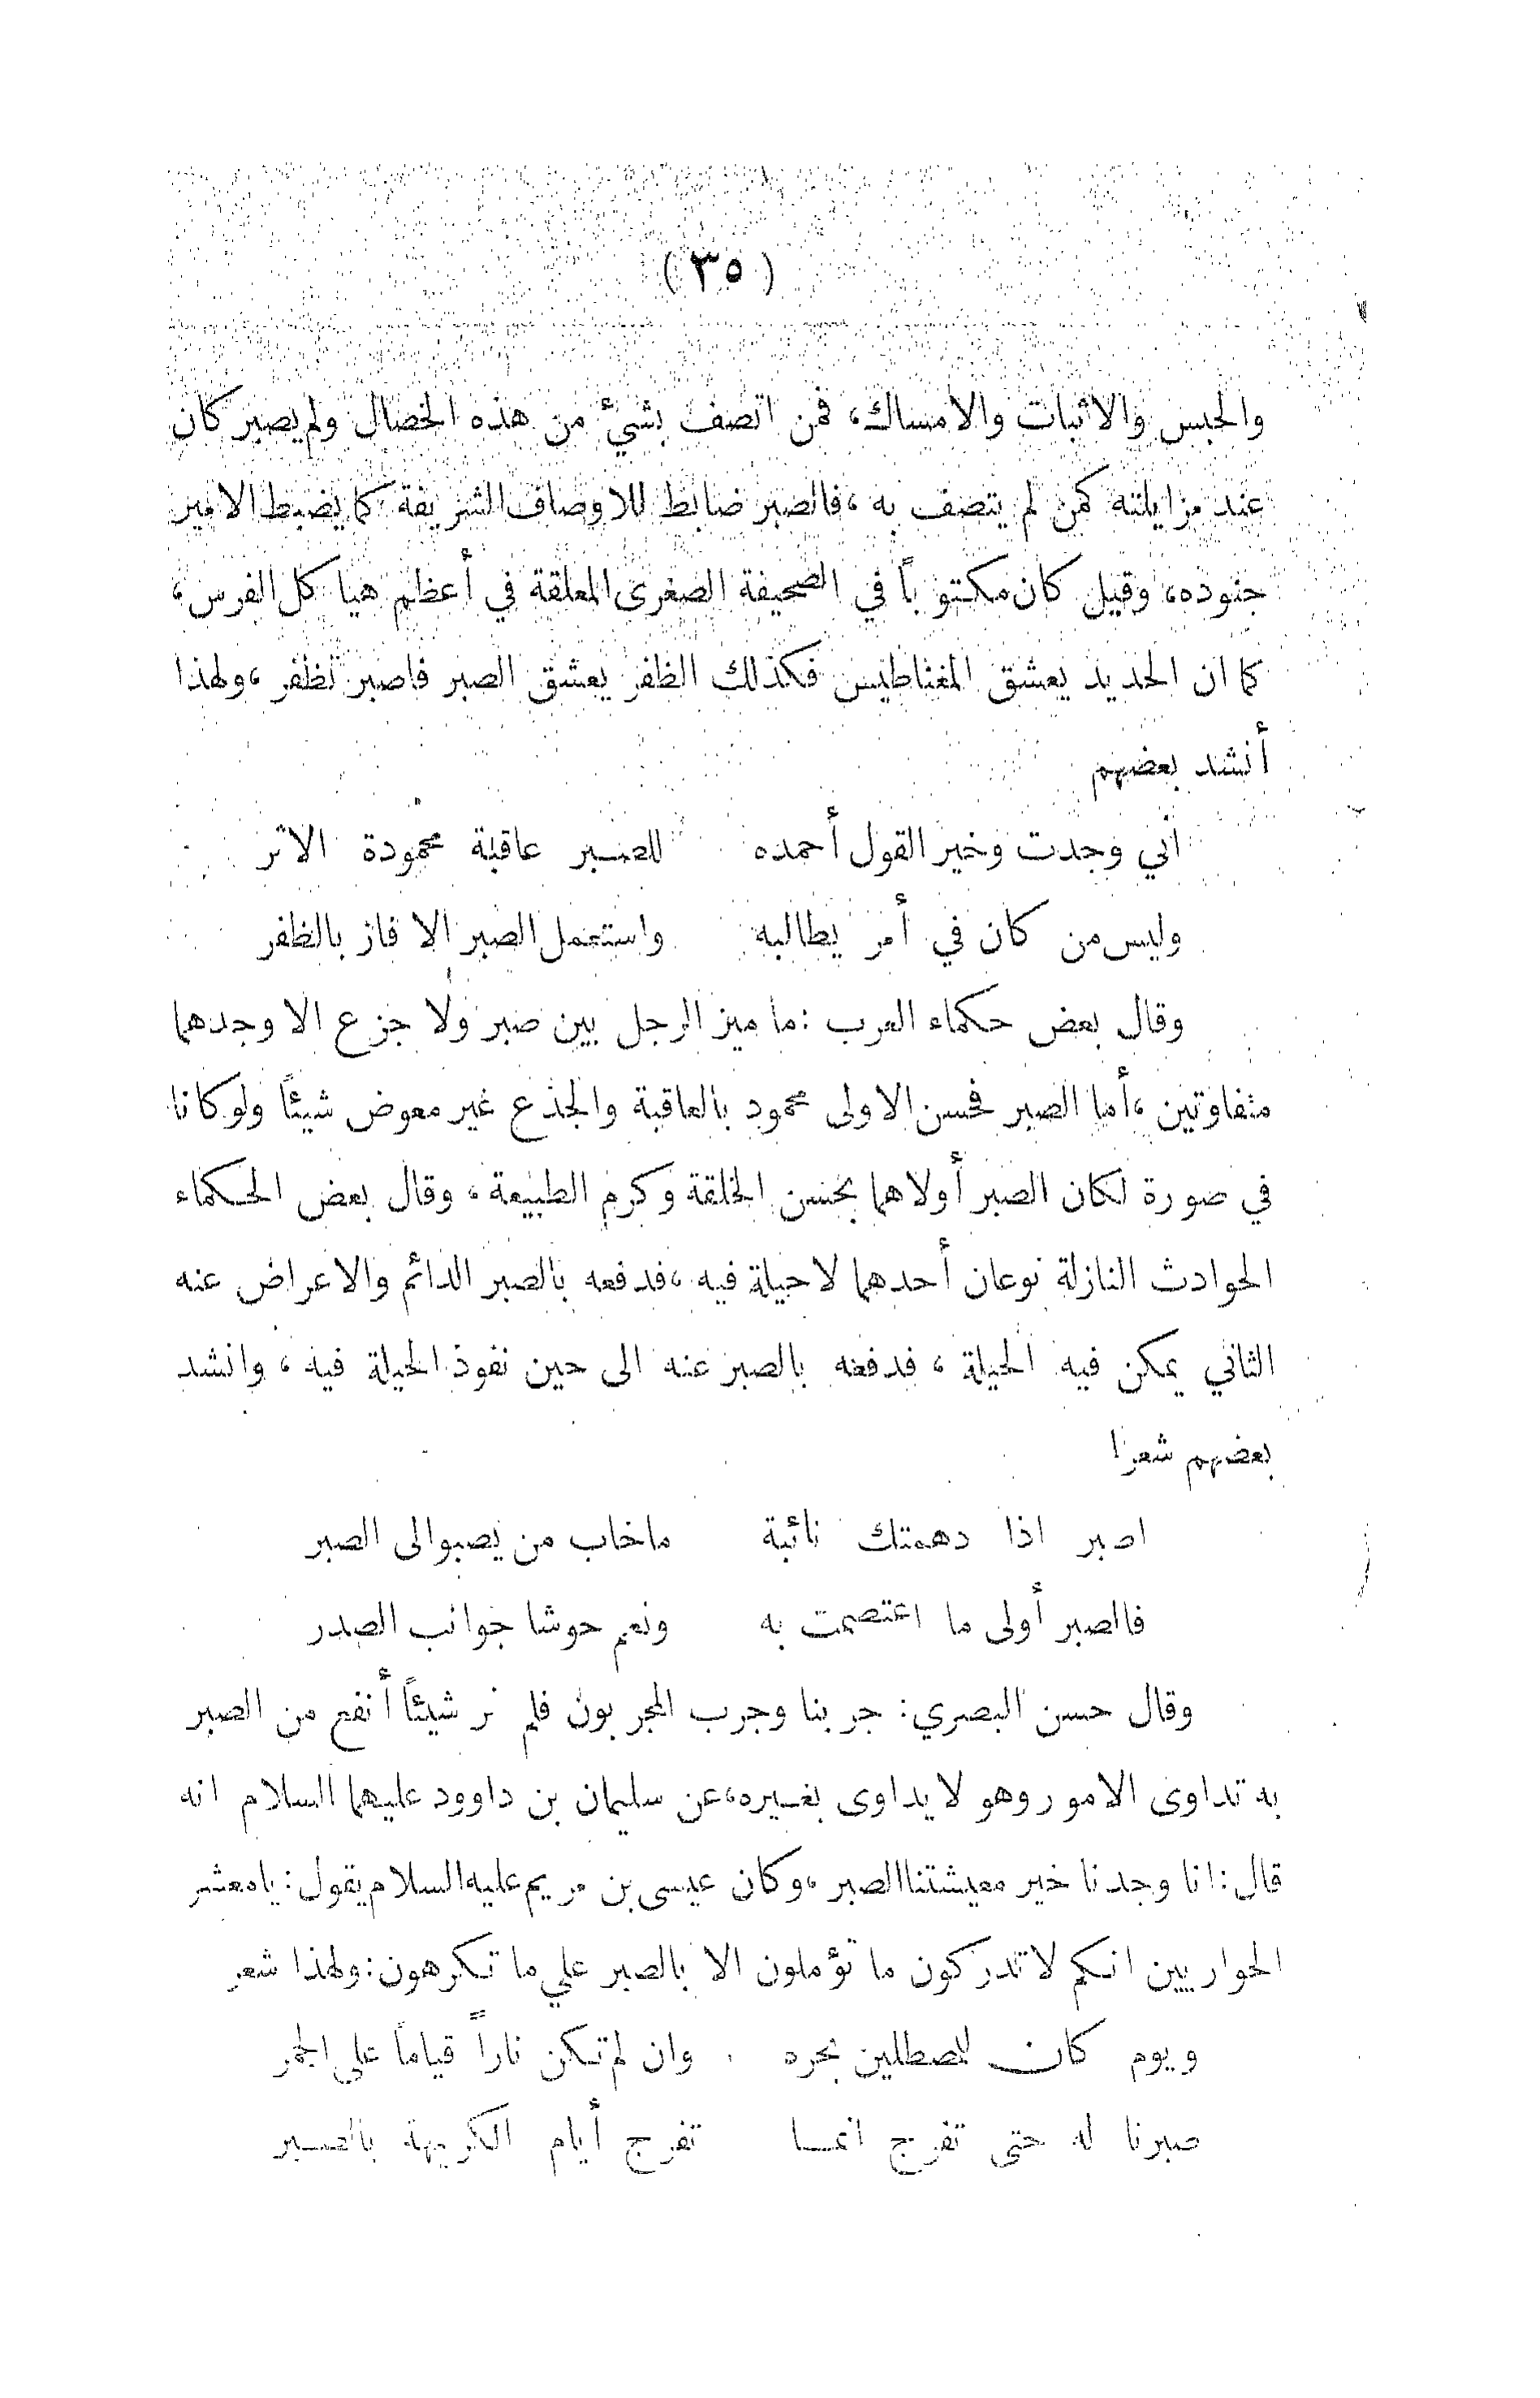 (٣٥)
والحبس والاثبات والامساك، فمن اتصف بشئ من هذه الخصال ولم يصبر كان
عند مزايلته كمن لم يتصف به ،فالصبر ضابط للاوصاف الشريفة كما يضبط الامير
جنوده، وقيل كان مكتوباً في الصحيفة الصغرى المعلقة في أعظم هياكل الفرس،
كما ان الحديد يعشق المغناطيس فكذلك الظفر يعشق الصبر فاصبر تظفر ،ولهذا
أنشد بعضهم
اني وجدت وخير القول أحمده للصبر عاقبة محمودة الاثر
وليس من كان في أمر يطالبه واستعمل الصبر الا فاز بالظفر
وقال بعض حكماء العرب :ما ميز الرجل بين صبر ولا جزع الا وجدهما
متفاوتين ،أما الصبر فحسن الاولى محمود بالعاقبة والجذع غير معوض شيئاً ولو كانا
في صورة لكان الصبر أولاهما بحسن الخلقة وكرم الطبيعة، وقال بعض الحكماء
الحوادث النازلة نوعان أحدهما لا حيلة فيه ،فدفعه بالصبر الدائم والاعراض عنه
الثاني يمكن فيه الحيلة ، فدفعه بالصبر عنه الى حين نفوذ الحيلة فيه ، وانشد
بعضهم شعرا
اصبر اذا دهمتك نائبة ماخاب من يصبوالى الصبر
فالصبر أولى ما اعتصمت به ونعم حوشا جوانب الصدر
وقال حسن البصري: جربنا وجرب المجربون فلم نر شيئاً أنفع من الصبر
به تداوى الامور وهو لا يداوى بغيره،عن سليمان بن داوود عليهما السلام انه
قال:انا وجدنا خير معيشتنا الصبر ،وكان عيسى بن مريم عليه السلام يقول: يامعشر
الحواريين انكم لا تدركون ما تؤملون الا بالصبر علي ما تكرهون:ولهذا شعر
ويوم كان المصطلين بحره وان لم تكن ناراً قياماً على الجمر
صبرنا له حتى تفرج انما تفرج أيام الكريهة بالصبر